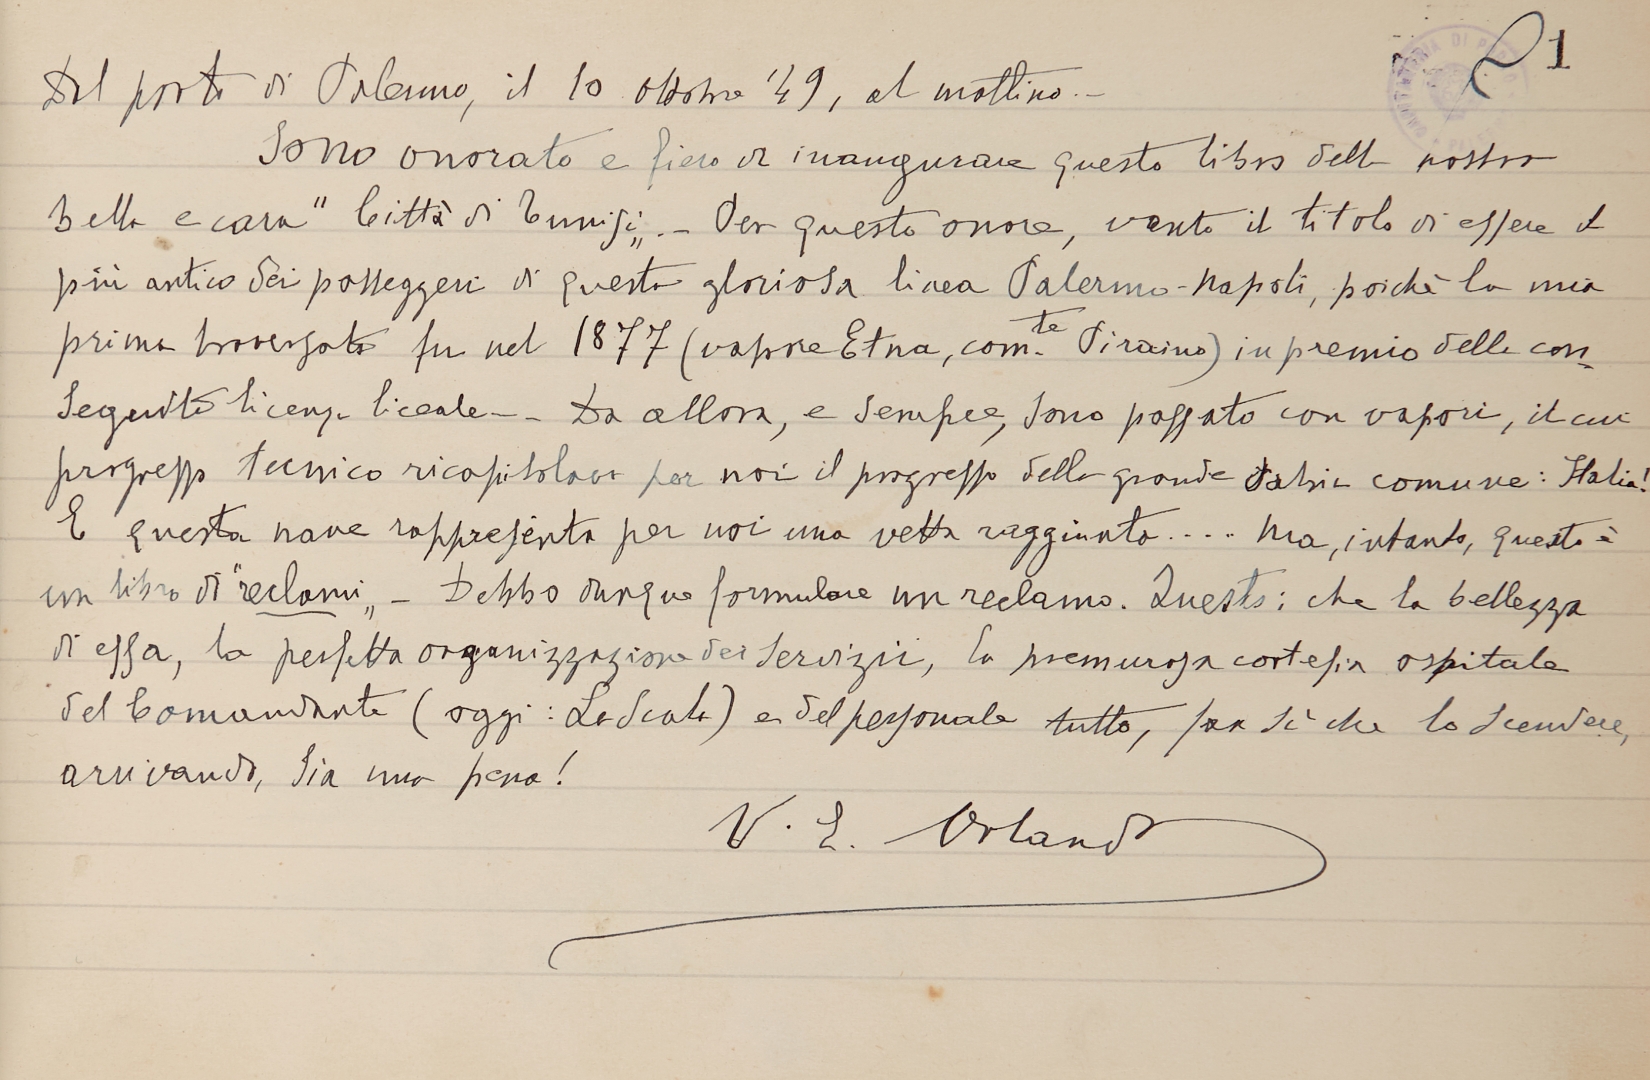 1
Dal porto di Palermo, il 10 ottobre '49, al mattino. -
Sono onorato e fiero di inaugurare questo libro della nostra
bella e cara "Città di Tunisi„. - Per questo onore, vanto il titolo di essere il
più antico dei passeggeri di questa gloriosa linea Palermo-Napoli, poichè la mia
prima traversata fu nel 1877 (vapore Etna, com.te Piraino) in premio della con
seguita licenza liceale. - Da allora, e sempre, sono passato con vapori, il cui
progresso tecnico ricapitolava per noi il progresso della grande Patria comune: Italia!
E questa nave rappresenta per noi una vetta raggiunta.... Ma, intanto, questo è
un libro di "reclami„ - Debbo dunque formulare un reclamo. Questo: che la bellezza
di essa, la perfetta organizzazione dei servizii, la premurosa cortesia ospitale
del Comandante (oggi: La Scala) e del personale tutto, fan sì che lo scendere,
arrivando, sia una pena!
V. E. Orlando